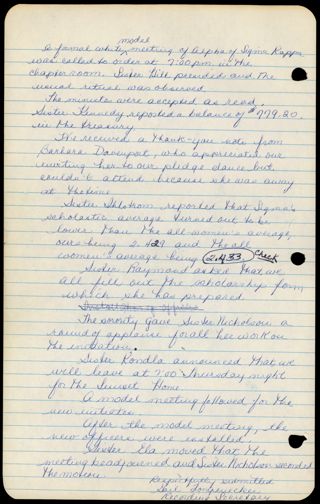 model
A formal white meeting of Alpha of Sigma Kappa
was called to order at 7:00 p.m. in the
chapter room. Sister Hill presided and the
usual ritual was observed.
The minutes were accepted as read.
Sister Kennedy reported a balance of $779.20
in the treasury.
We received a thank-you note from
Barbara Davenport, who appreciated our
inviting her to our pledge dance but
couldn't attend because she was away
at the time.
Sister Ehlstrom reported that Sigma's
scholastic average turned out to be
lower than the all women's average,
ours being 2.429 and the all
women's average being 2.433 check
Sister Raymond asked that we
all fill out the scholarship form
which she has prepared.
The sorority gave Sister Nicholson a
round of applause for all her work on
the initiation.
Sister Kondla announced that we
will leave at 7:00 Thursday night
for the Sunset Home.
A model meeting followed for the
new initiates.
After the model meeting, the
new officers were installed.
Sister Ela moved that the
meeting be adjourned and Sister Nicholson seconded
the motion.
Respectfully submitted
Recording Secretary